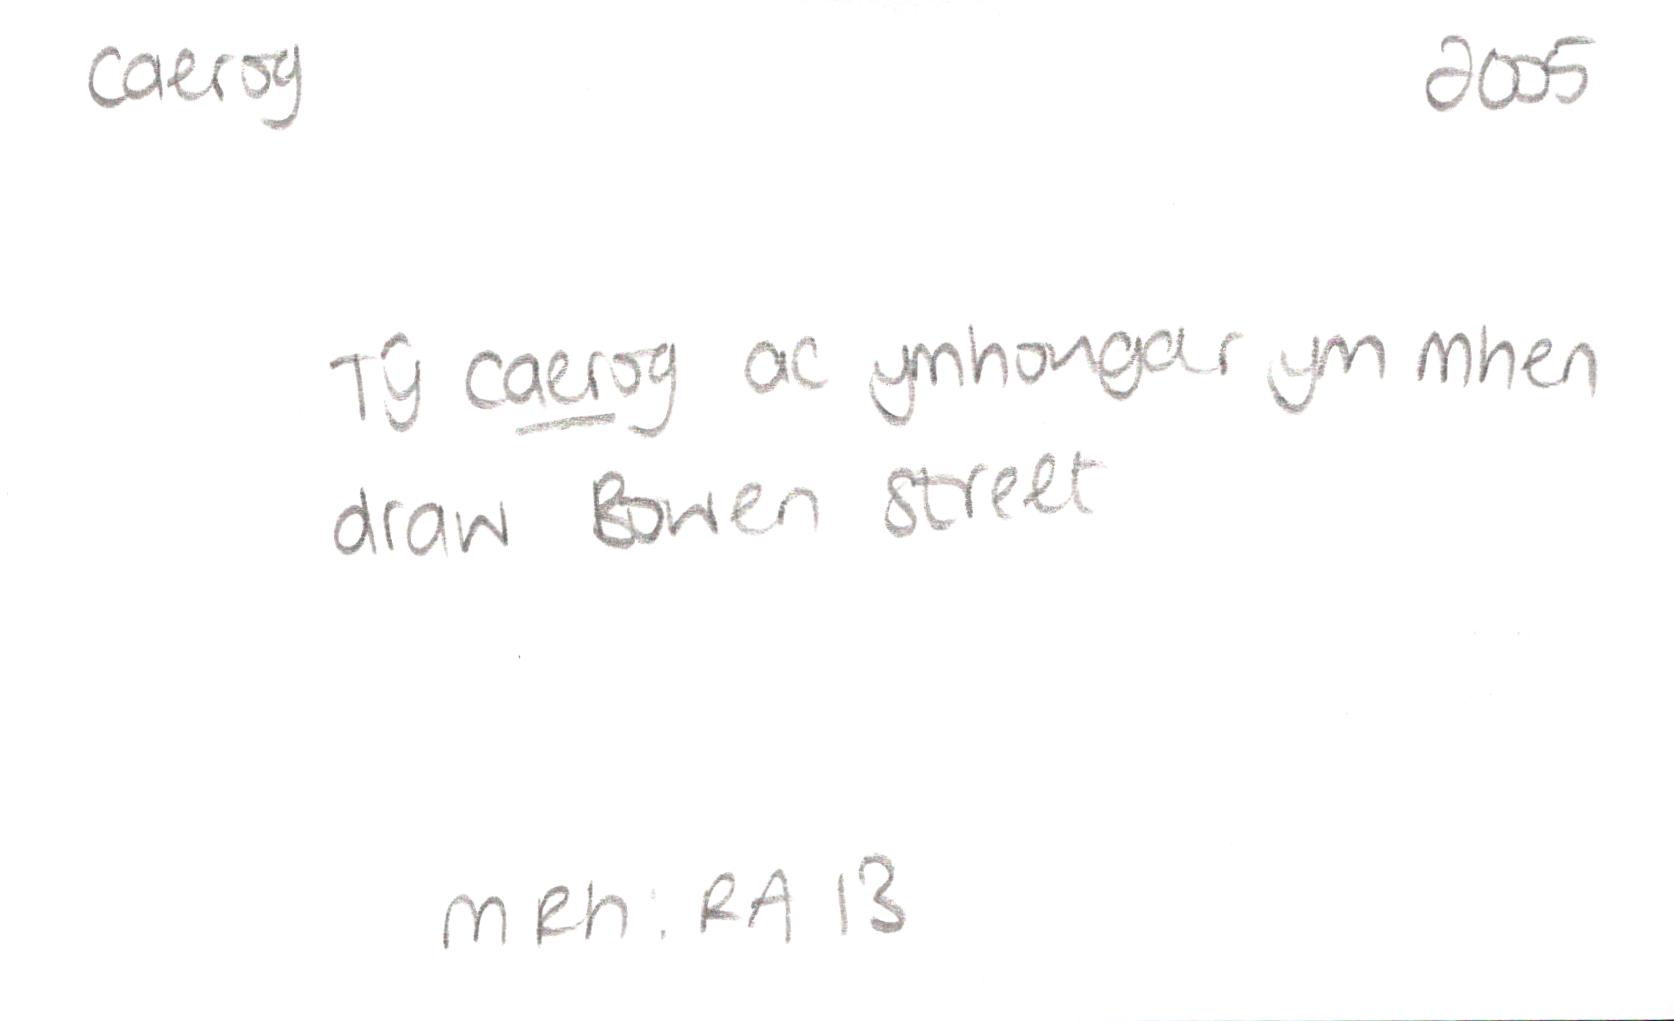 caerog 2005
Tŷ caerog ac ymhongar ym mhen
draw Bowen Street
MRh: RA 13